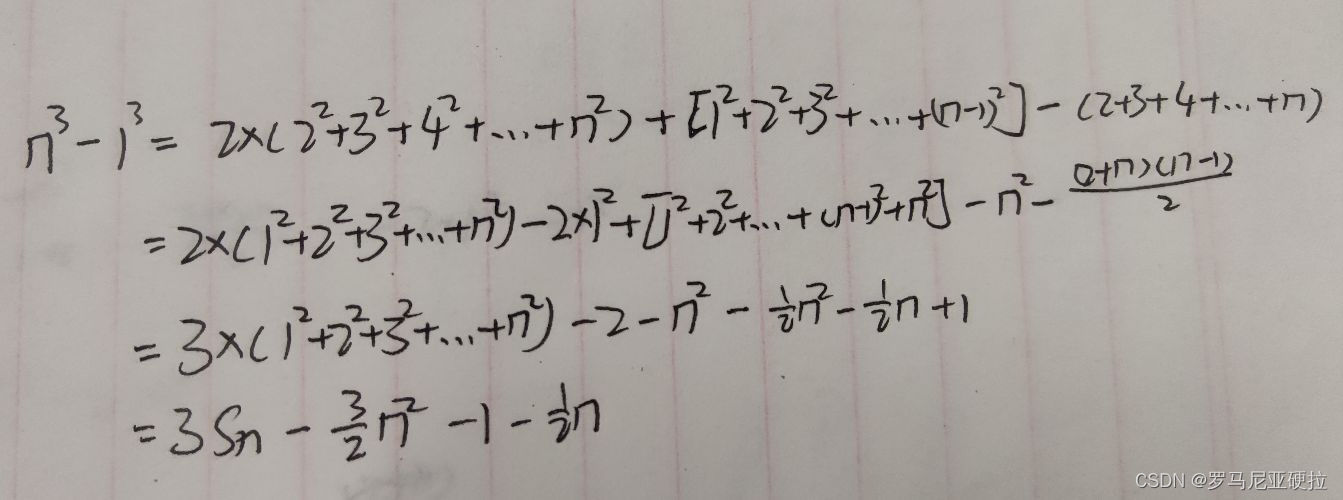 n³-1³= 2×(2²+3²+4²+...+n²)+[1²+2²+3²+...+(n-1)²]-(2+3+4+...+n)
=2×(1²+2²+3²+...+n²)-2×1²+[1²+2²+...+(n-1)²+n²]-n²-(2+n)(n-1)/2
=3×(1²+2²+3²+...+n²)-2-n²-½n²-½n+1
=3Sn-3/2n²-1-½n
CSDN @罗马尼亚硬拉